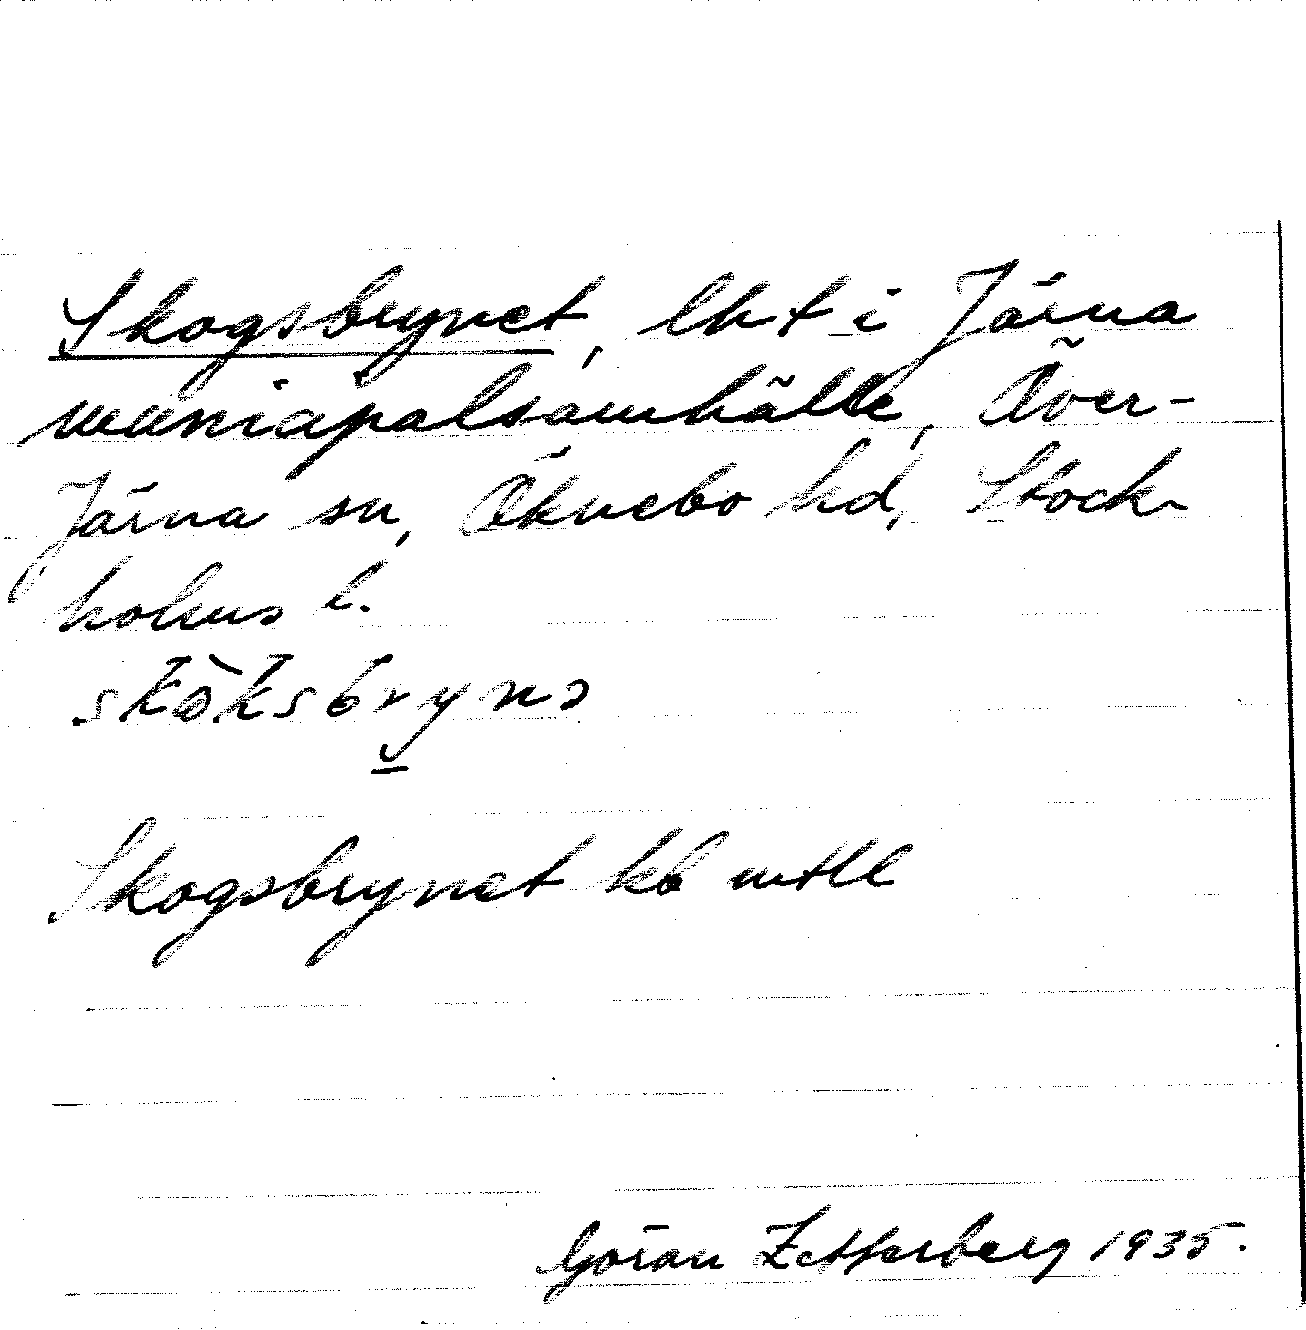 Skogsbrynet, lht i Järna
municipalsamhälle, Över-
Järna sn, Öknebo hd, Stock-
holms l.
skòksbryna
Skogsbrynet kb mtll
Göran Zetterberg 1935.